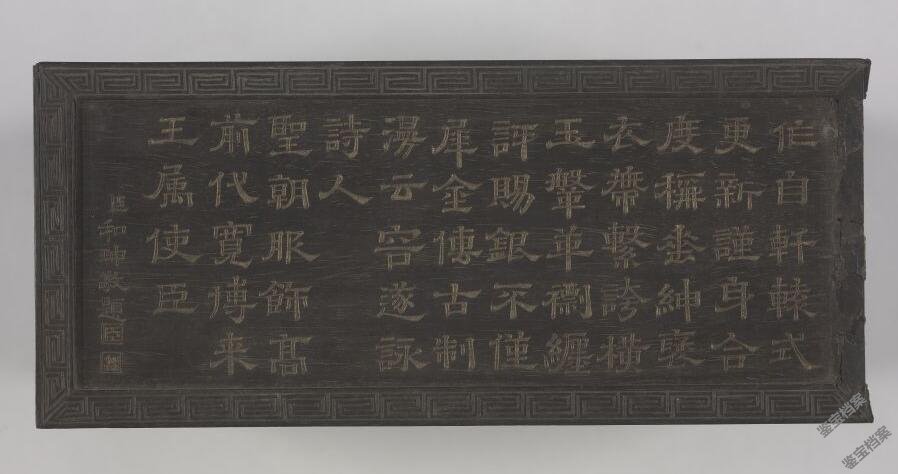 作自軒轅式
更新謹身合
度稱垂紳褒
衣帶繫誇橫
玉鞶革纏
評賜銀不僅
犀金傳古制
漫云容遂詠
詩人
聖朝服飾髙
前代寬博来
王属使臣
臣和珅敬題
鉴宝档案
鉴宝档案